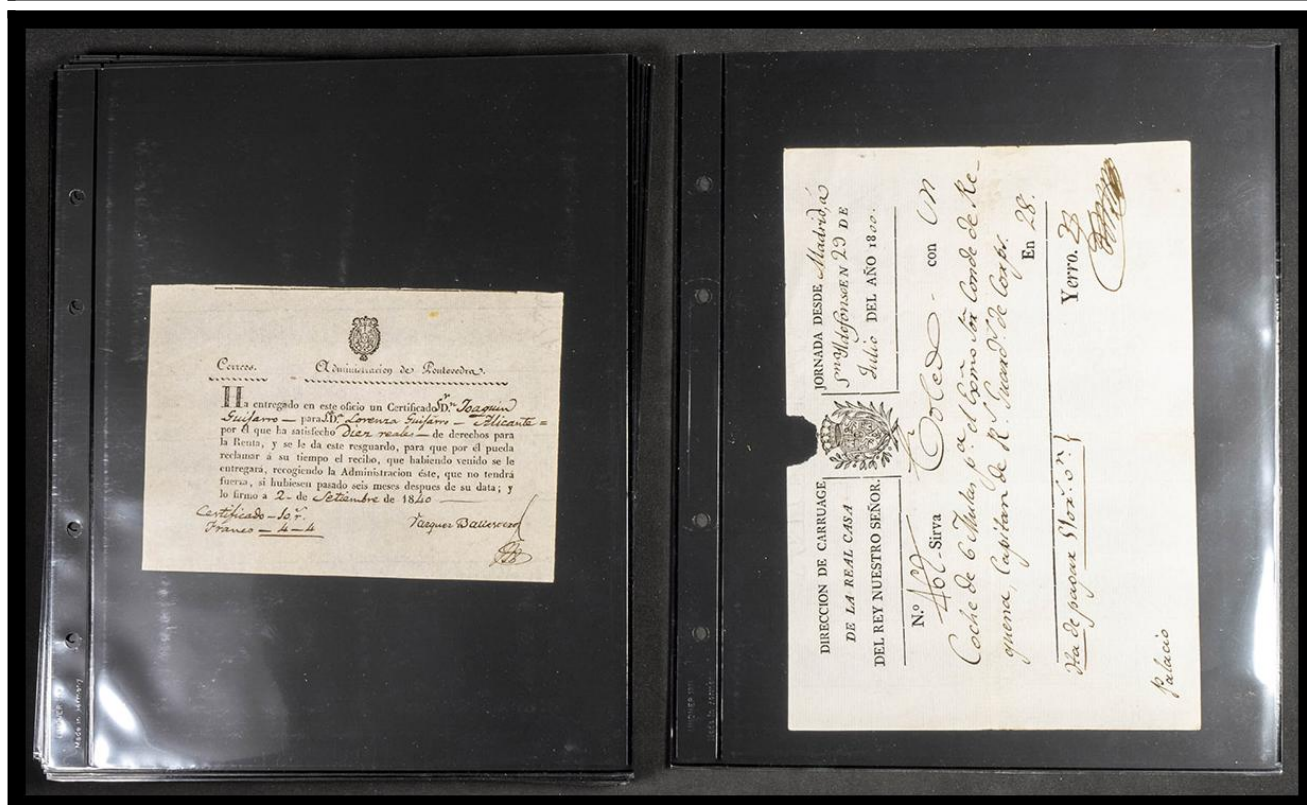 Correos. Administracion de Pontevedra.
Ha entregado en este oficio un Certificado Sr. Dn. Joaquin
Guijarro — para Sa. Da. Lorenza Guijarro — Alicante =
por él que ha satisfecho Diez reales — de derechos para
la Renta, y se le da este resguardo, para que por él pueda
reclamar á su tiempo el recibo, que habiendo venido se le
entregará, recogiendo la Administracion éste, que no tendrá
fuerza, si hubiesen pasado seis meses despues de su data; y
lo firmo a 2 - de Setiembre de 1840
Certificado — 10 r.
Franco — 4 — 4
Vazquez
Made in Germany
DIRECCION DE CARRUAGE
DE LA REAL CASA
DEL REY NUESTRO SEÑOR.
JORNADA DESDE Madrid, á
Sn. Yldefonso EN 29 DE
Julio DEL AÑO 1800.
N.º Sirva Toledo - con Un
Coche de 6 Mulas pa. el Exmo. Sor. Conde de Re-
quena, Capitan de Rs. Guards. de Corps.
En 28.
Yerro. 28
Ha de pagar
Palacio